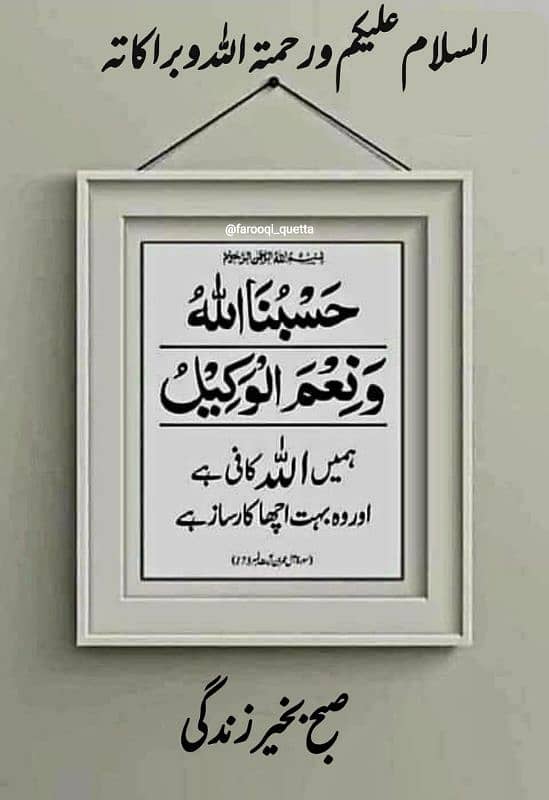 السلام علیکم ورحمتہ اللہ وبراکاتہ
@farooqi_quetta
بِسْمِ اللهِ الرَّحْمٰنِ الرَّحِيْمِ
حَسْبُنَا اللهُ
وَنِعْمَ الْوَكِيْلُ
ہمیں اللہ کافی ہے
اور وہ بہت اچھا کارساز ہے
(سورۃ آل عمران آیت نمبر 173)
صبح بخیر زندگی